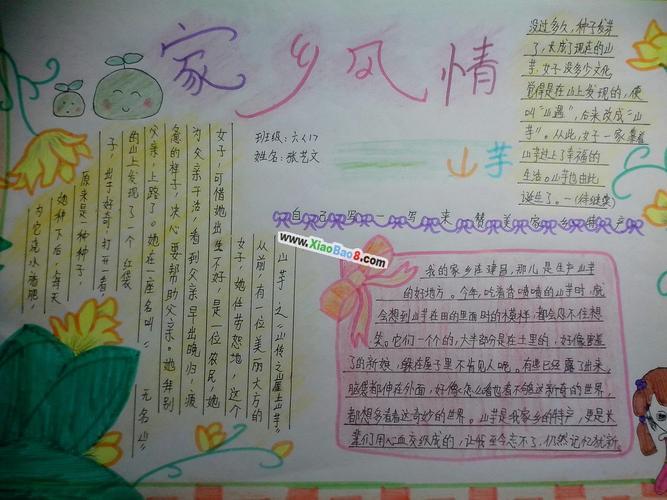 家乡风情
班级:六〈1〉
姓名:张艺文
山芋
自己写一写来赞美家乡特产
www.XiaoBao8.com
山芋之
从前,有一位美丽大方的
女子,她任劳怨地,这个
女子,可惜她出生不好,是一位农民,她
为父亲干活,看到父亲早出晚归,疲
惫的样子,决心要帮助父亲。她辞别
父亲,上路了。她在一座名叫《无名山》
的山上发现了一个红袋
子,出于好奇,打开一看,
原来是一种种子,
她种下后,每天
为它浇水施肥,
没过多久,种子发芽
了,长成了现在的山
芋。女子没多少文化,
觉得是在山上发现的,便
叫“山遇”,后来改成“山
芋”。从此,女子一家靠着
山芋过上了幸福的
生活。山芋也由此
诞生了。—(待继续)
我的家乡在建昌,那儿是生产山芋
的好地方。今年,吃着香喷喷的山芋时,就
会想到山芋在田的里面时的模样,都会忍不住想
笑。它们一个个的,大半部分是在土里的,好像害羞
了的新娘,躲在屋子里不肯见人呢。有些已经露了出来,
脑袋都伸在外面,好像怎么看也看不够这新奇的世界,
都想多看看这奇妙的世界。山芋是我家乡的特产,更是长
辈们用心血交织成的,让我至今忘不了,仍然记忆犹新